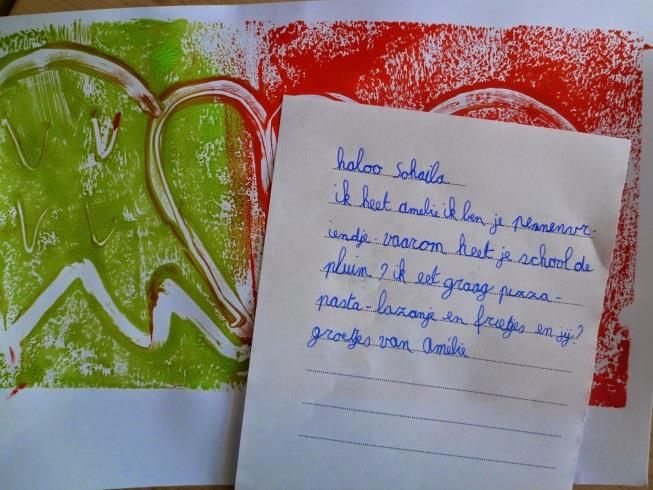 haloo Sohaila
ik heet amelie ik ben je pennenvr-
iendje. vaarom heet je school de
pluim? ik eet graag pizza-
pasta-lazanje en frietjes en jij?
groetjes van Amélie